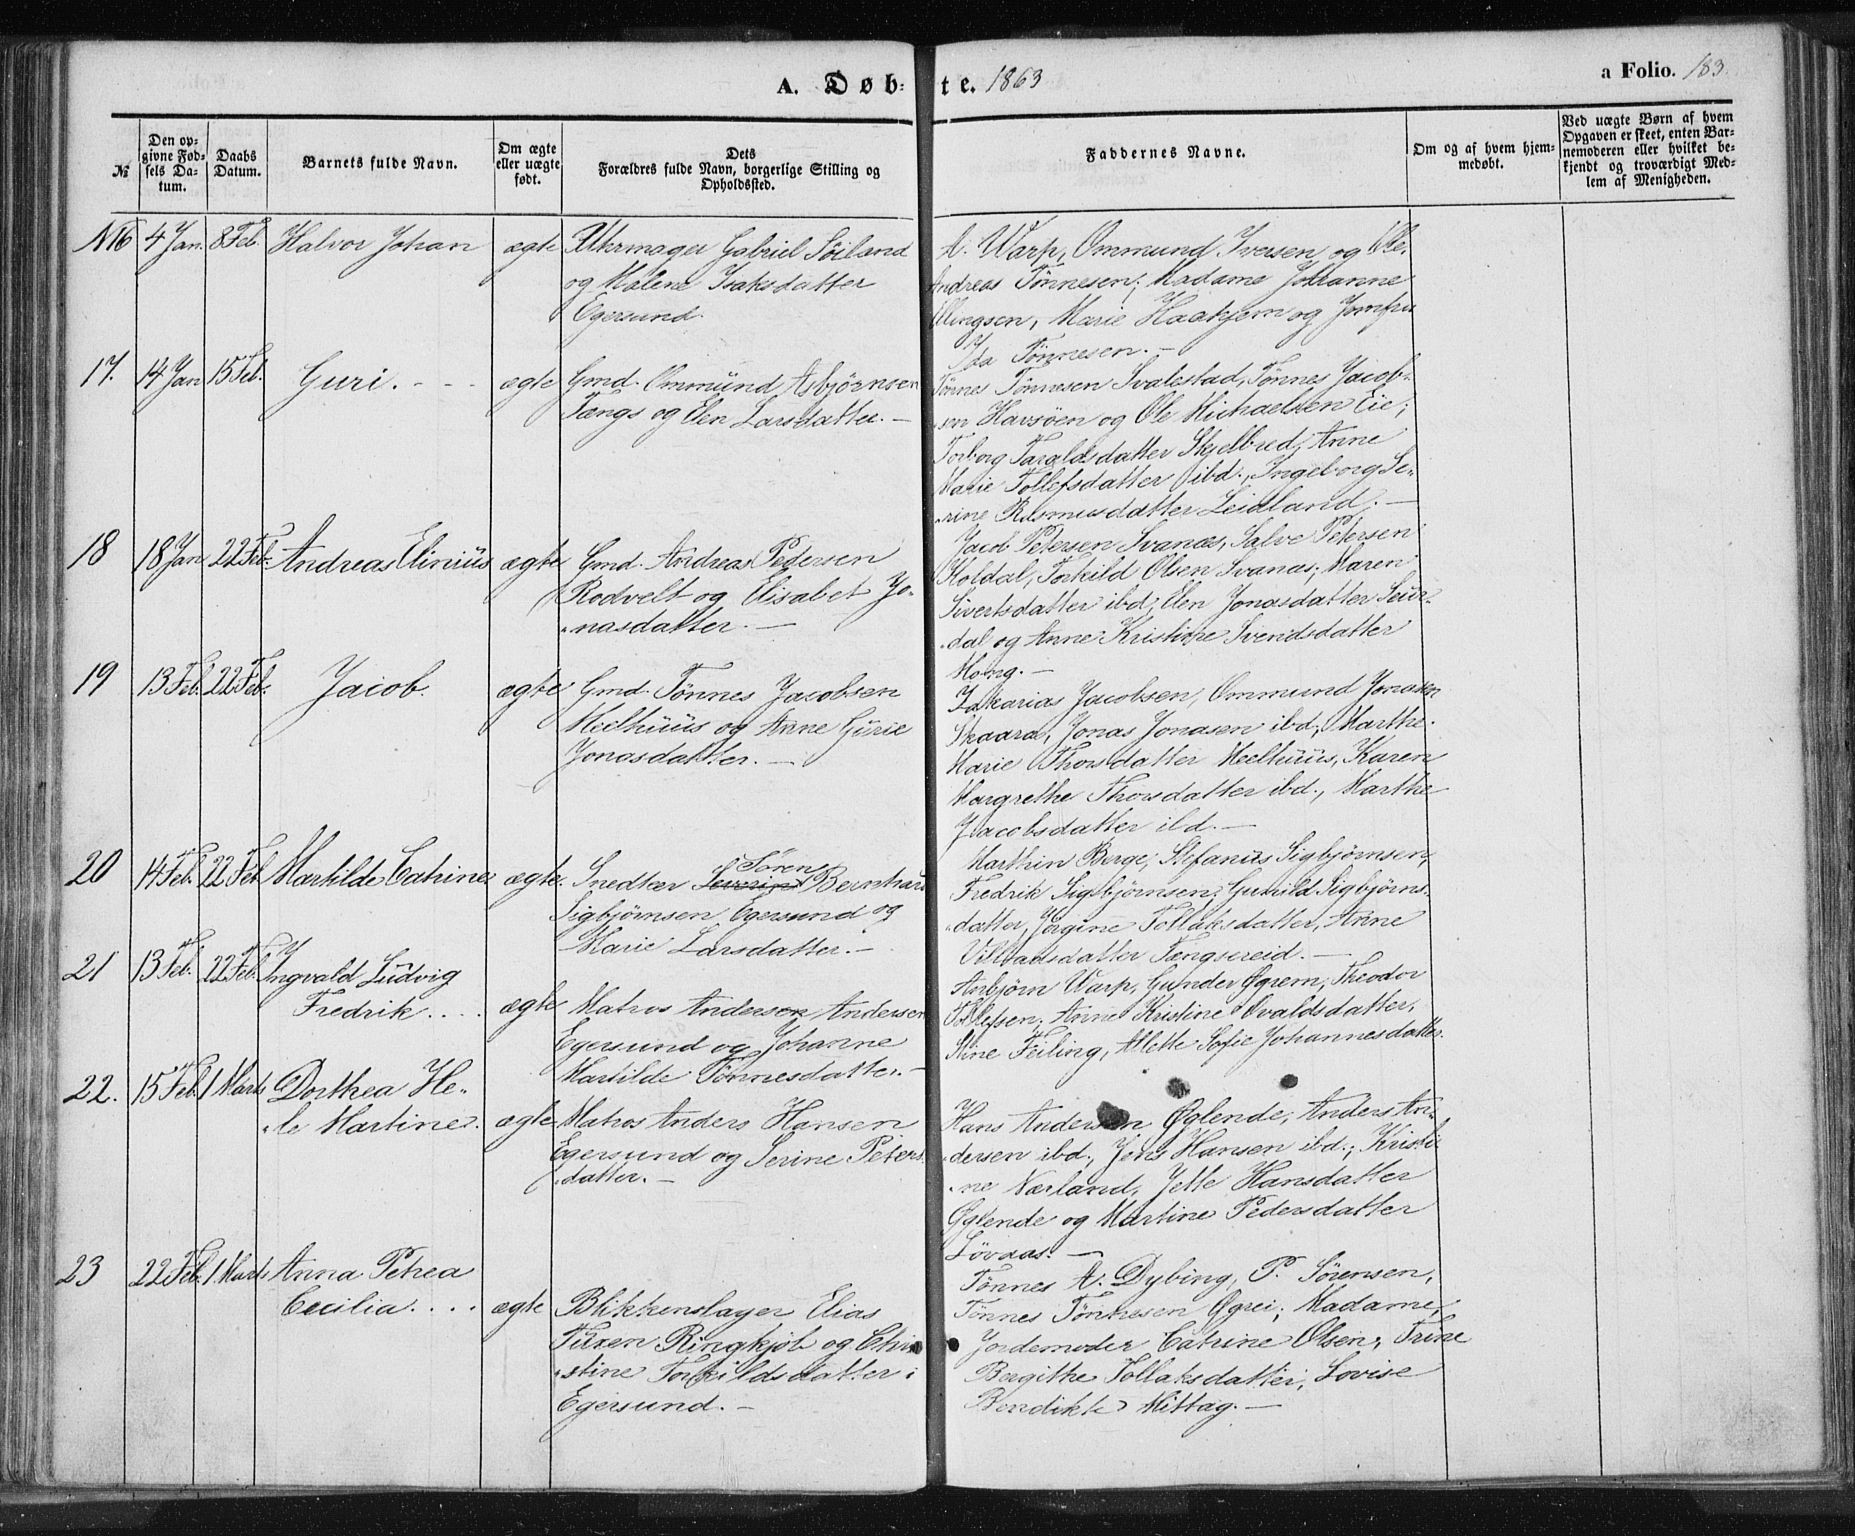 A. Døb-te. 1863
a Folio. 183.
№
Den op-
givne Fød-
sels Da-
tum.
Daabs
Datum.
Barnets fulde Navn.
Om ægte
eller uægte
født.
Dets
Forældres fulde Navn, borgerlige Stilling og
Opholdssted.
Faddernes Navne.
Om og af hvem hjem-
medøbt.
Ved uægte Børn af hvem
Opgaven er skeet, enten Bar-
nemoderen eller hvilket be-
kjendt og troværdigt Med-
lem af Menigheden.
N16 4 Jan. 8 Feb. Halvor Johan ægte Uhrmager Gabriel Söiland
og Malene Isaksdatter
Egersund.
A. Warp, Ommund Iversen og Ole
Andreas Tönnesen; Madame Johanne
Ellingsen, Marie Haakjem og Jomfru
Ida Tönnesen.-
17. 14 Jan 15 Feb. Guri. - - - ægte Gmd. Ommünd Asbjörnsen
Tængs og Elen Larsdatter. -
Tönnes Tönnesen Svalestad, Tönnes Jacob-
sen Havsöen og Ole Michaelsen Eie;
Torborg Taraldsdatter Skjelbred, Anne
Marie Tollefsdatter ibd., Ingeborg Se-
rine Rasmusdatter Leidland. -
18 18 Jan 22 Feb. Andreas Eliniüs ægte Gmd. Andreas Pedersen
Rodvelt og Elisabet Jo-
nasdatter. -
Jacob Petersen Svanæs, Salve Petersen
Koldal, Torkild Olsen Svanæs; Maren
Sivertsdatter ibd; Elen Jonasdatter Seur-
dal og Anne Kristine Svendsdatter
Mong. -
19 13 Feb. 22 Feb. Jacob. ægte Gmd. Tönnes Jacobsen
Meelhüüs og Anne Gürie
Jonasdatter. -
Zakarias Jacobsen, Ommund Jonasen
Skaara, Jonas Jonasen ibd.; Marthe
Marie Thorsdatter Meelhüüs, Karen
Margrethe Thorsdatter ibd., Marthe
Jacobsdatter ibd. -
20 14 Feb. 22 Feb Mathilde Catrine ægte. Snedker Severin Sören Bernhard
Sigbjörnsen Egersund og
Marie Larsdatter. -
Marthin Berge; Stefanüs Sigbjörnsen,
Fredrik Sigbjörnsen; Gunild Sigbjörns-
datter, Jörgine Tollaksdatter, Anne
Villadsdatter Tængsereid. -
21 13 Feb. 22 Feb. Ingvald Lüdvig
Fredrik.... ægte Matros Andersen Andersen
Egersund og Johanne
Martilde Tönnesdatter. -
Anbjörn Warp, Gunder Ögrem, Theodor
Tollefsen; Anne Kristine Osvaldsdatter,
Stine Feiling, Allette Sofie Johannesdatter.
22. 15 Feb. 1 Marts Dorthea He-
le Martine. ægte Matros Anders Hansen
Egersund og Serine Peters-
datter. -
Hans Andersen Öglende, Anders An-
dersen ibd., Jens Hansen ibd.; Kristi-
ne Nærland, Jette Hansdatter
Öglende og Martine Pedersdatter
Lövaas. -
23 22 Feb. 1 Marts Anna Petrea
Cecilia.... ægte Blikkenslager Elias
Tüxen Ringkjöb og Chri-
stine Torkildsdatter i
Egersund. -
Tönnes A. Dybing, P. Sörensen,
Tönnes Tönnesen Ögrei; Madame,
Jordemoder Catrine Olsen, Trine
Bergithe Tollaksdatter, Lovise
Bendikte Mittag. -